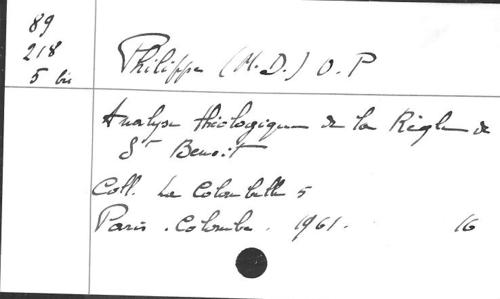 89
218
5 bis
Philippe (M.D.) O.P
Analyse théologique de la Règle de
St Benoit
Coll. La Colombelle 5
Paris. Colombe. 1961. 16